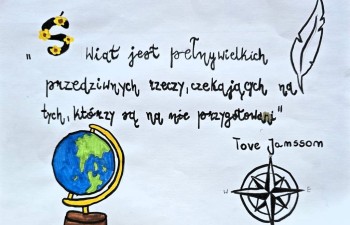 „Świat jest pełny wielkich
przedziwnych rzeczy, czekających na
tych, którzy są na nie przygotowani"
Tove Jamssom
N
W E
S